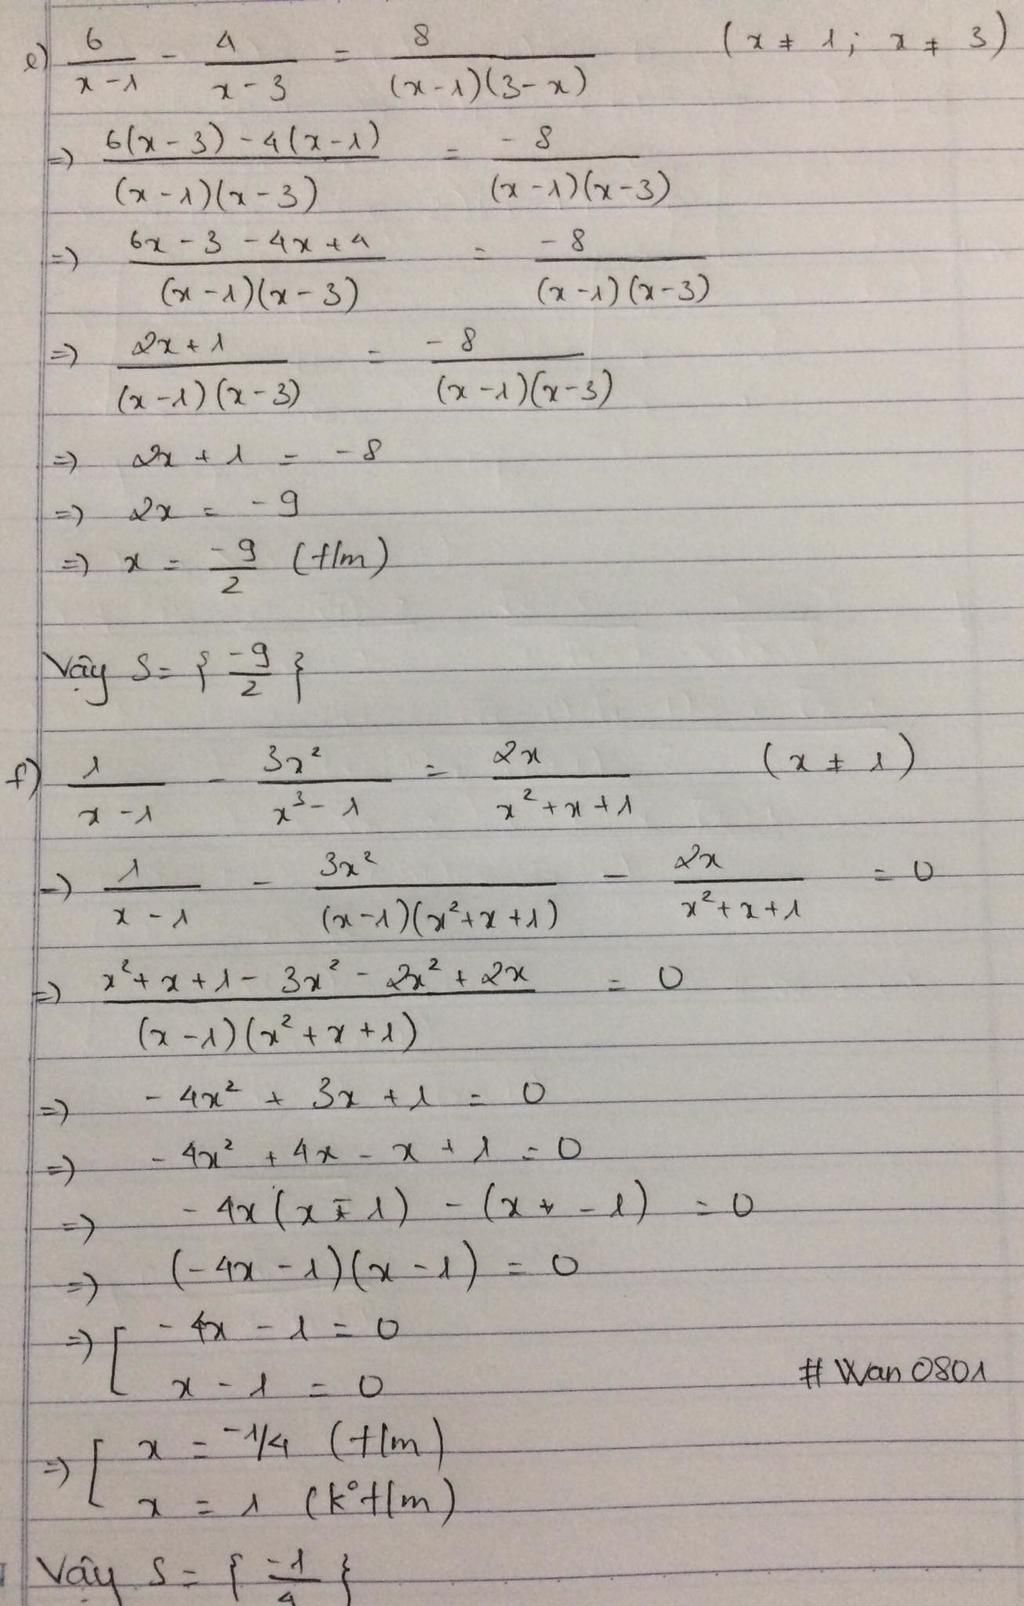 e) 6/(x-1) - 4/(x-3) = 8/((x-1)(3-x)) (x ≠ 1; x ≠ 3)
=> (6(x-3)-4(x-1))/((x-1)(x-3)) = -8/((x-1)(x-3))
=> (6x-3-4x+4)/((x-1)(x-3)) = -8/((x-1)(x-3))
=> (2x+1)/((x-1)(x-3)) = -8/((x-1)(x-3))
=> 2x + 1 = -8
=> 2x = -9
=> x = -9/2 (t/m)
Vậy S = { -9/2 }
f) 1/(x-1) - 3x²/(x³-1) = 2x/(x²+x+1) (x ≠ 1)
=> 1/(x-1) - 3x²/((x-1)(x²+x+1)) - 2x/(x²+x+1) = 0
=> (x²+x+1-3x²-2x²+2x)/((x-1)(x²+x+1)) = 0
=> -4x² + 3x + 1 = 0
=> -4x² + 4x - x + 1 = 0
=> -4x(x-1) - (x-1) = 0
=> (-4x-1)(x-1) = 0
=> [ -4x - 1 = 0
x - 1 = 0
# Wan 0801
=> [ x = -1/4 (t/m)
x = 1 (k° t/m)
Vậy S = { -1/4 }